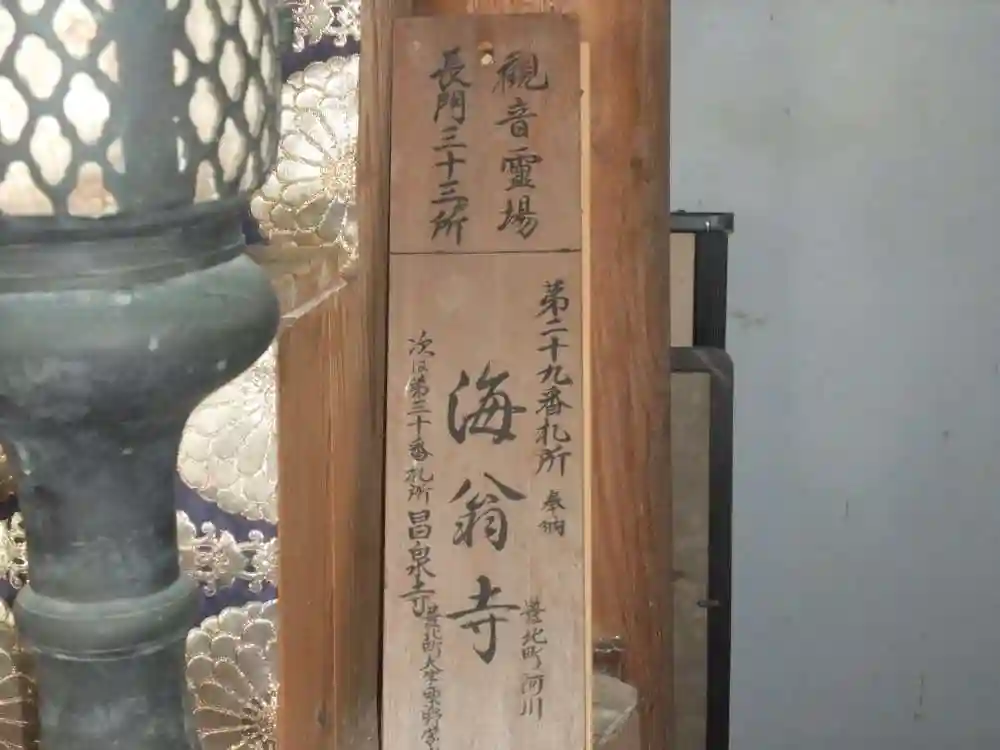 観音霊場
長門三十三所
第二十九番札所 奉納
豊北町河川
海翁寺
次は第三十番札所 昌泉寺
豊北町大字粟野